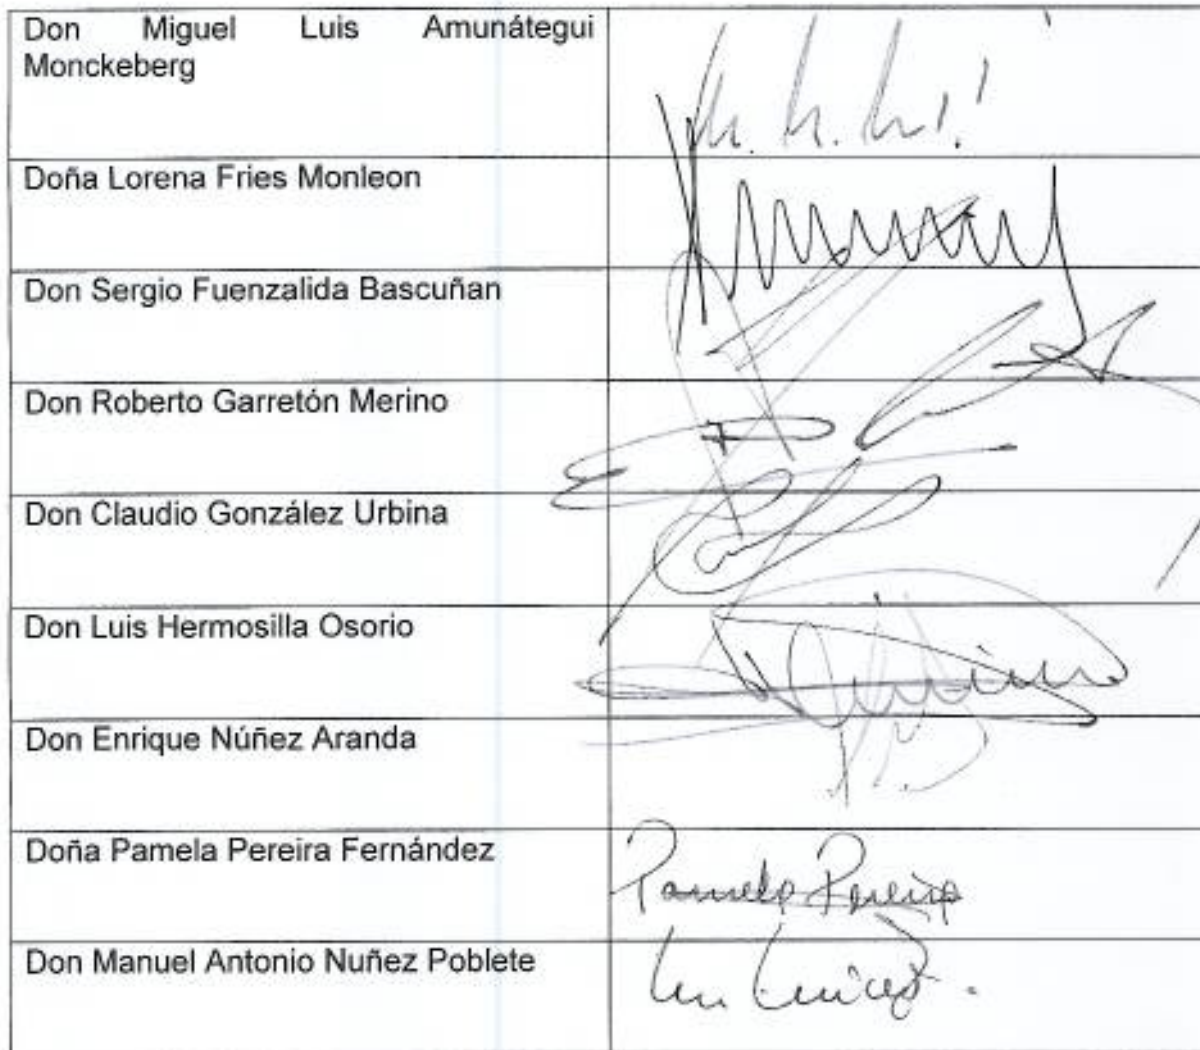 Don Miguel Luis Amunátegui
Monckeberg
Doña Lorena Fries Monleon
Don Sergio Fuenzalida Bascuñan
Don Roberto Garretón Merino
Don Claudio González Urbina
Don Luis Hermosilla Osorio
Don Enrique Núñez Aranda
Doña Pamela Pereira Fernández
Pamela Pereira
Don Manuel Antonio Nuñez Poblete